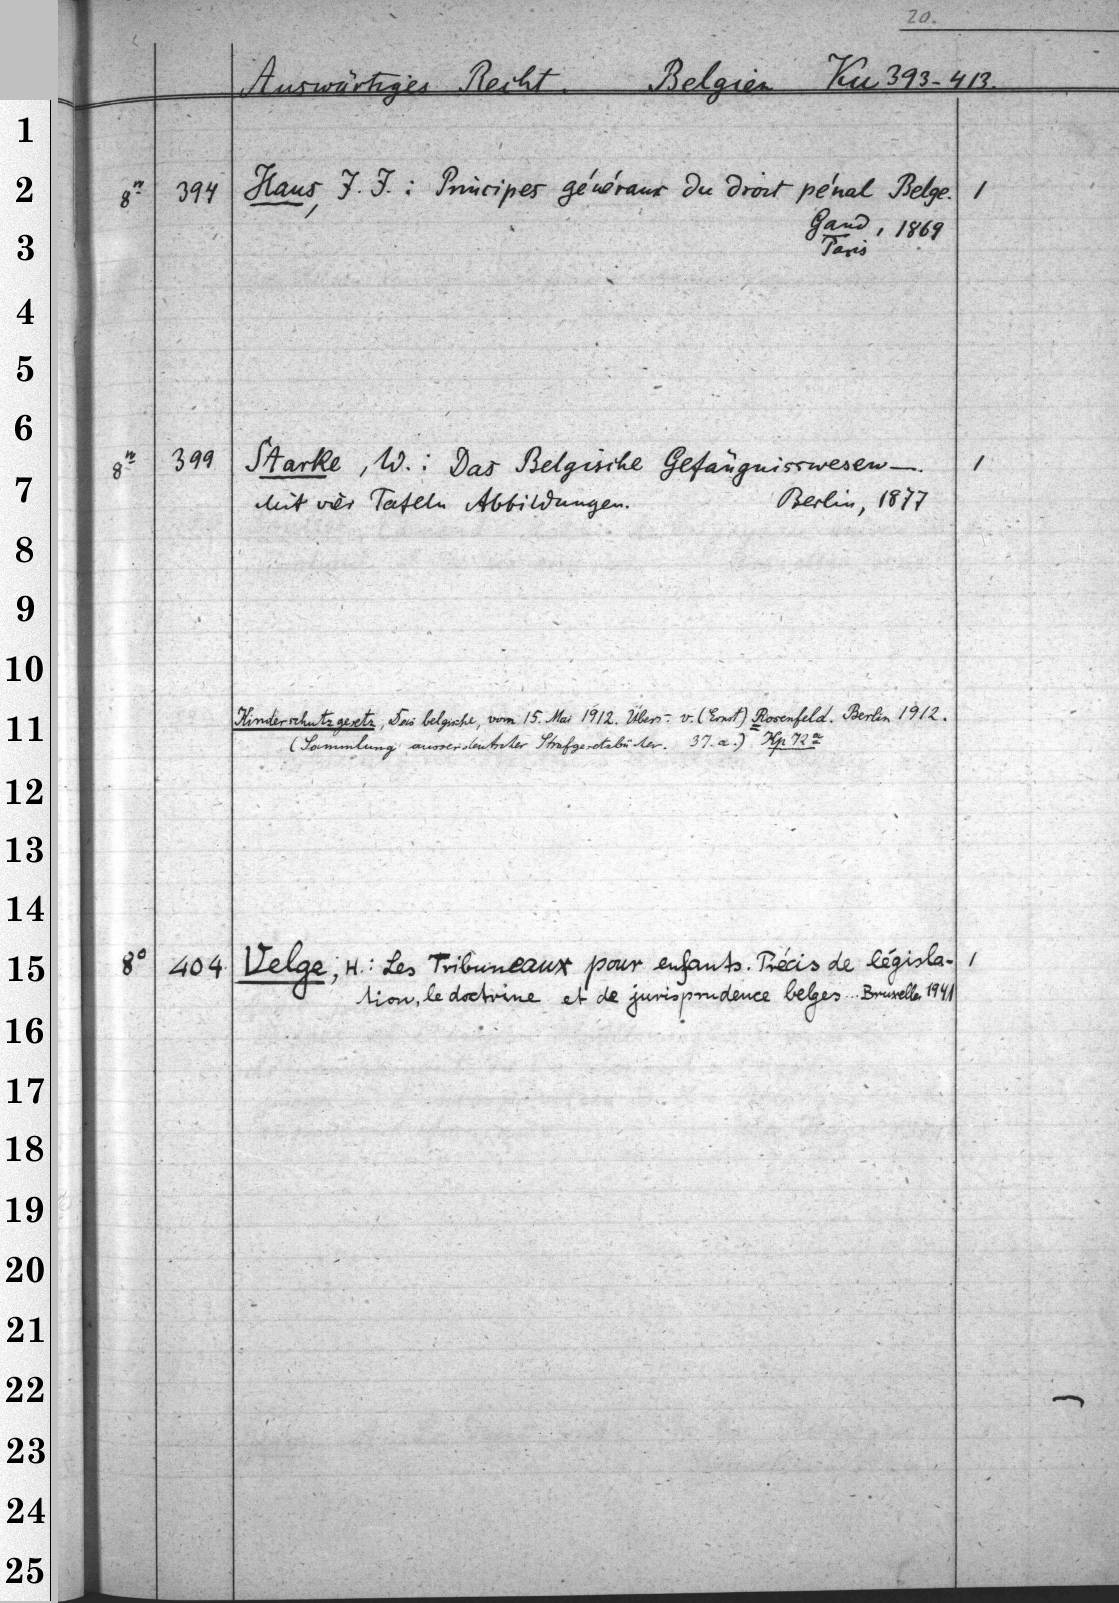 20.
Auswärtiges Recht. Belgien Ku 393-413.
1
2
8º 394 Haus, J. J.: Principes généraux du droit pénal Belge. 1
Gand, 1869
Paris
3
4
5
6
8º 399 Starke, W.: Das Belgische Gefängnisswesen—. 1
7
Mit vier Tafeln Abbildungen. Berlin, 1877
8
9
10
11
Kinderschutzgesetz, Das belgische, vom 15. Mai 1912. Übers. v. (Ernst) Rosenfeld. Berlin 1912.
(Sammlung ausserdeutscher Strafgesetzbücher. 37.a.) Kp 72ª
12
13
14
15
8º 404 Velge, H.: Les Tribuneaux pour enfants. Précis de législa- 1
tion, le doctrine et de jurisprudence belges... Bruxelles 1941
16
17
18
19
20
21
22
23
24
25